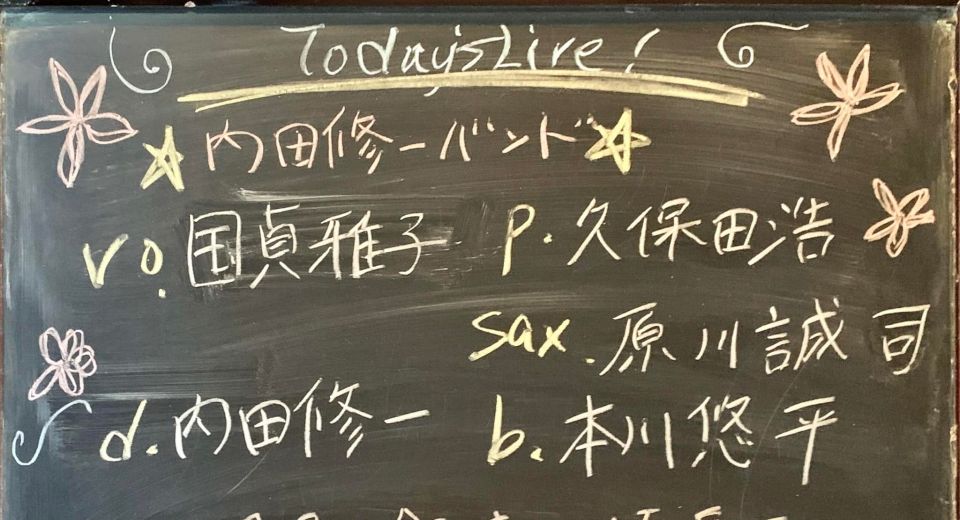 Today's Live!
☆内田修一バンド☆
vo.国貞雅子 p.久保田浩
sax.原川誠司
d.内田修一 b.本川悠平